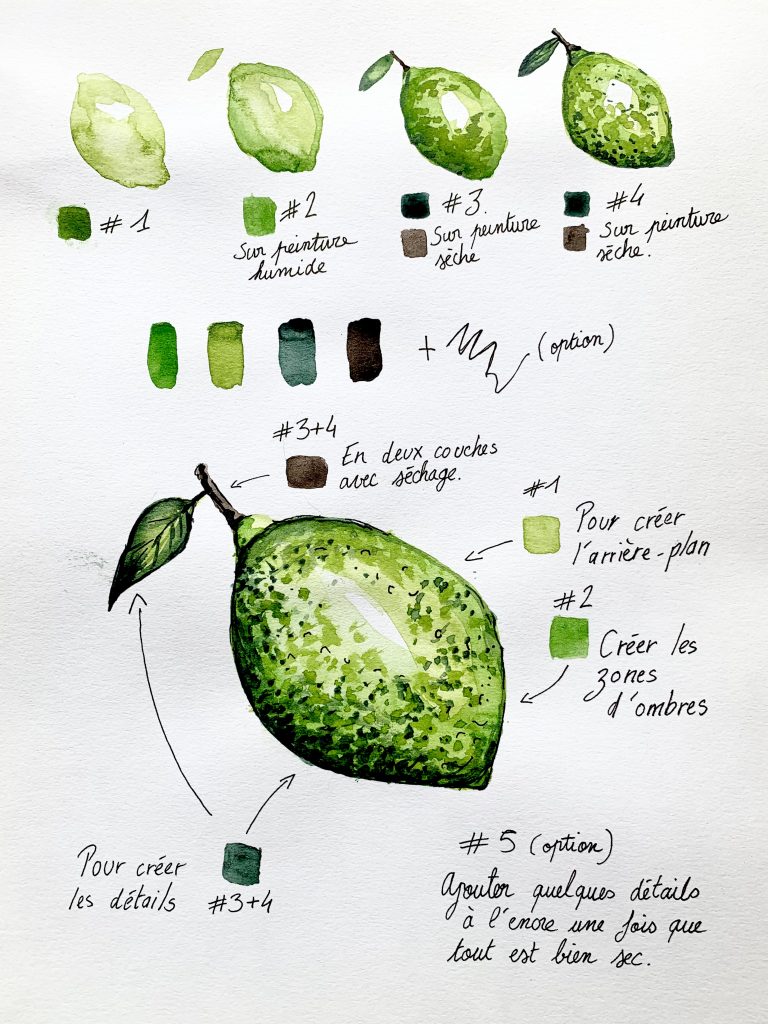 #1
#2
Sur peinture
humide
#3.
Sur peinture
sèche
#4
Sur peinture
sèche.
+ (option)
#3+4
En deux couches
avec séchage.
#1
Pour créer
l'arrière-plan
#2
Créer les
zones
d'ombres
Pour créer
les détails
#3+4
#5 (option)
Ajouter quelques détails
à l'encre une fois que
tout est bien sec.